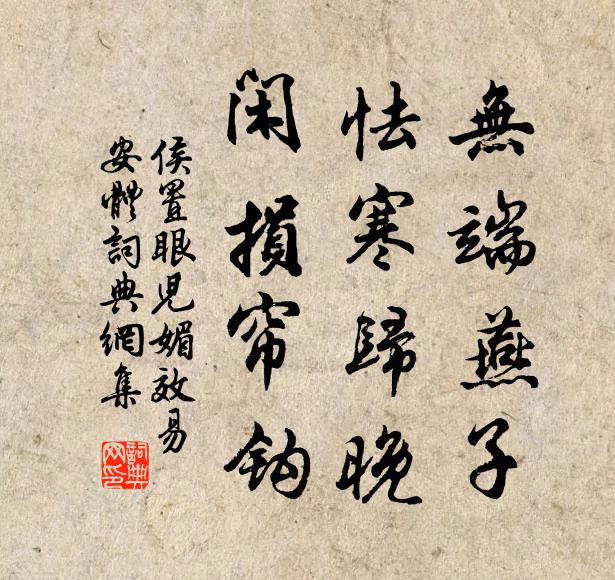 無端燕子
怯寒歸晚
閑損帘鈎
侯置眼児媚效易
安體詞典網集
詞典
网印